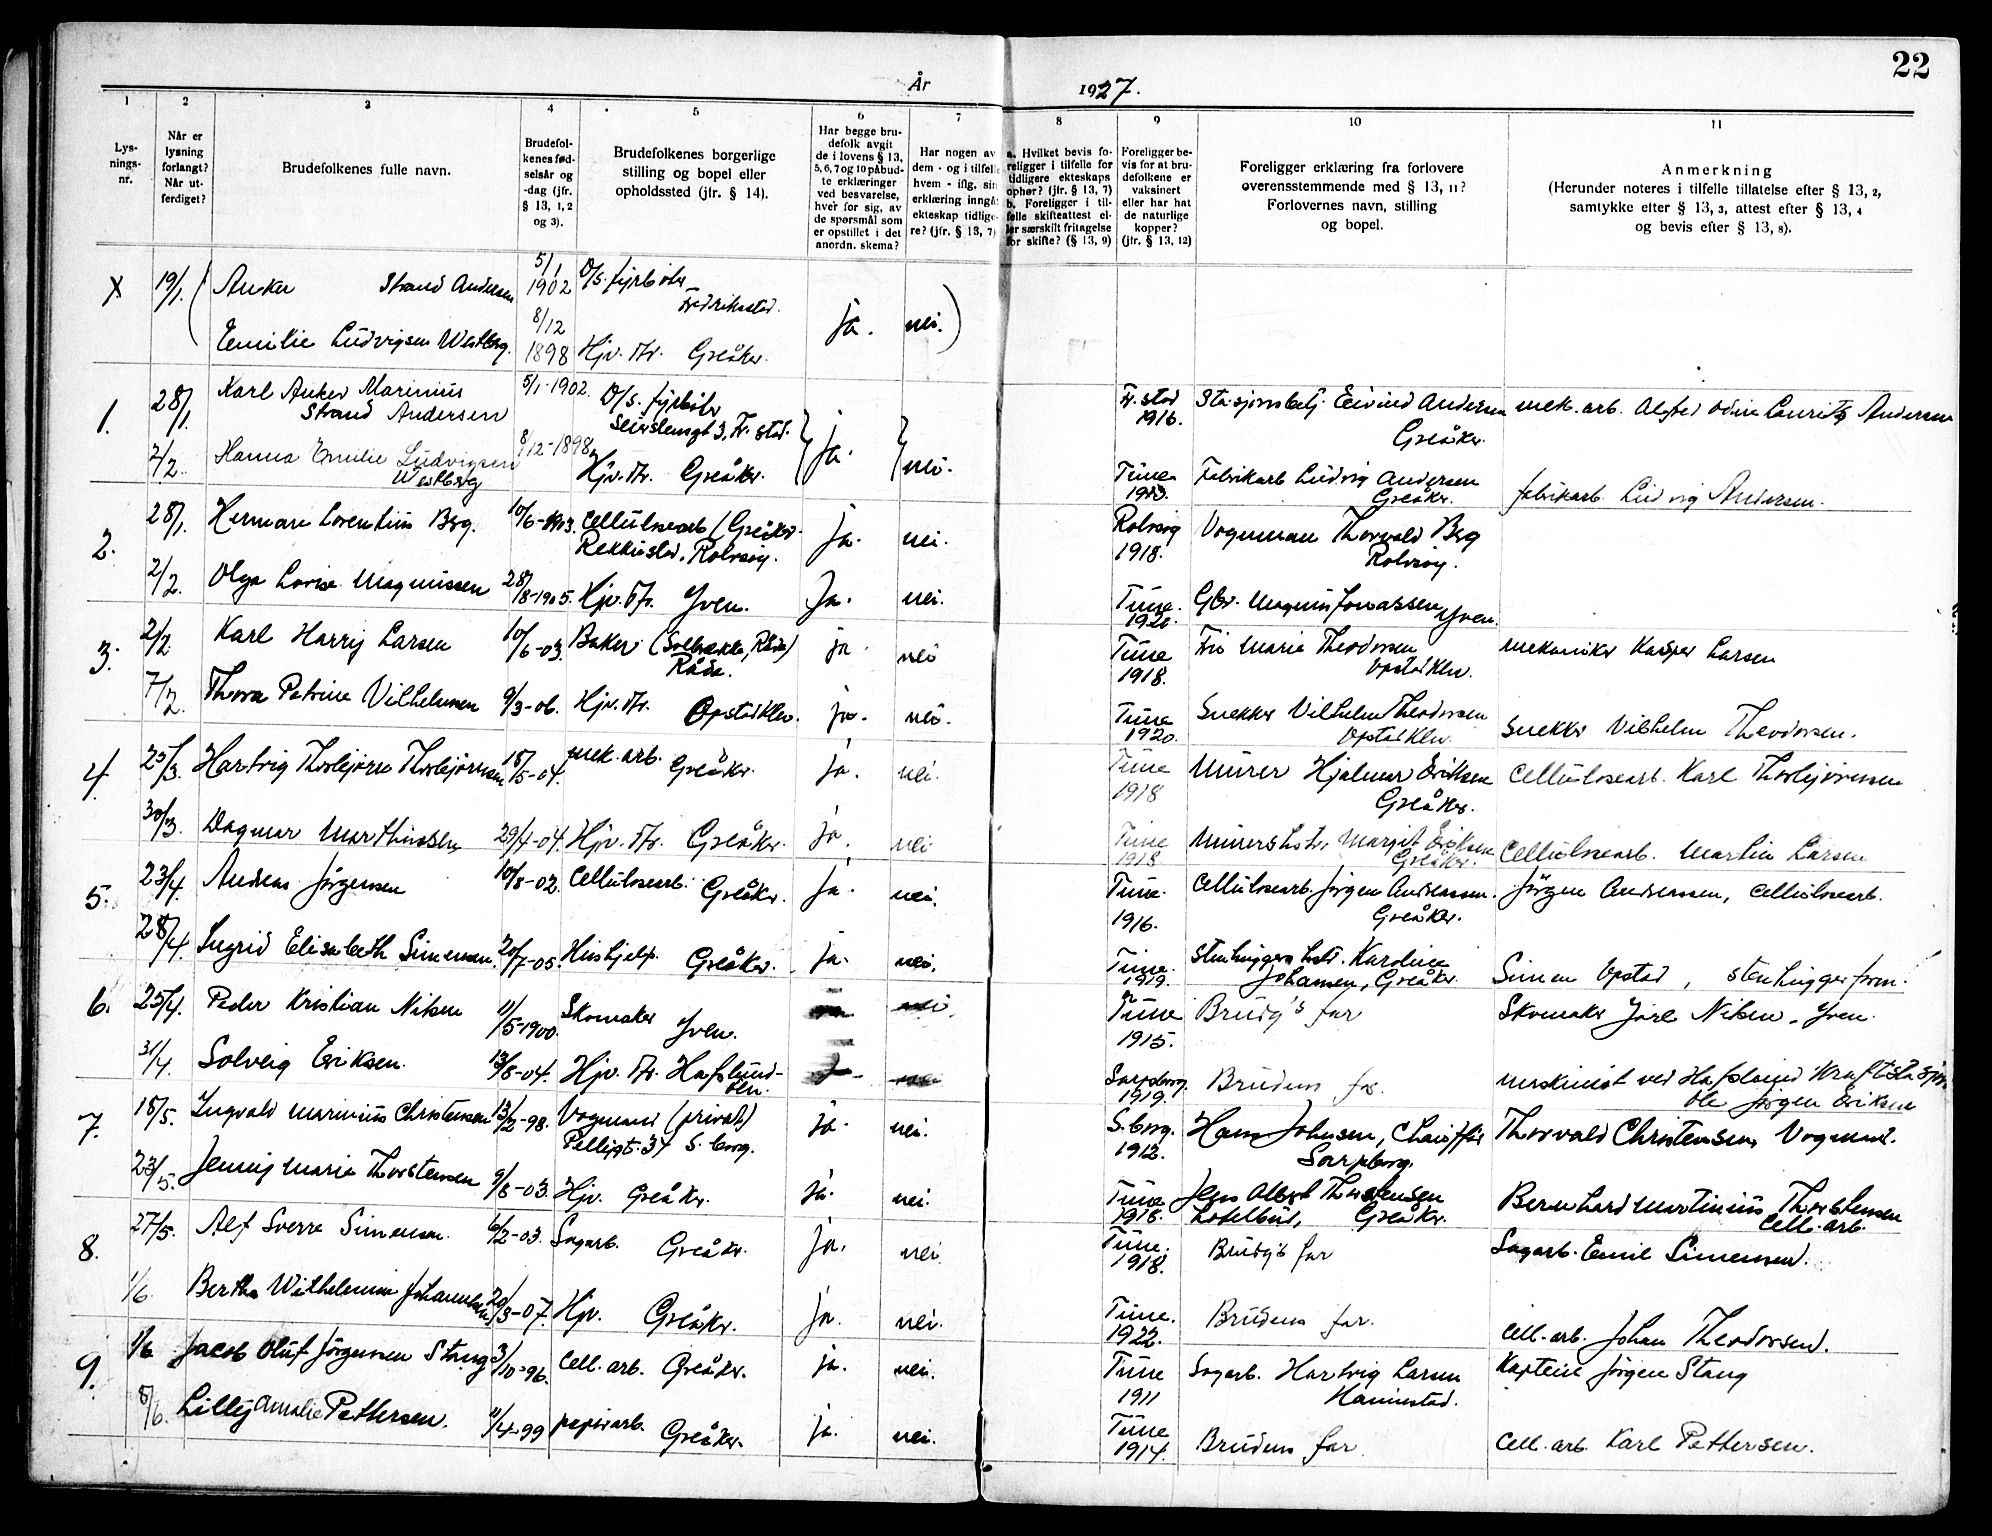 22
År 1927.
1 2 3 4 5 6 7 8 9 10 11
Lysnings-nr.
Når er lysning forlangt? Når utferdiget?
Brudefolkenes fulle navn.
Brudefolkenes fødselsår og -dag (jfr. § 13, 1, 2 og 3).
Brudefolkenes borgerlige stilling og bopel eller opholdssted (jfr. § 14).
Har begge brudefolk avgit de i lovens § 13, 5, 6, 7 og 10 påbudte erklæringer ved besvarelse, hver for sig, av de spørsmål som er opstillet i det anordn. skema?
Har nogen av dem - og i tilfelle hvem - iflg. sin erklæring inngåt ekteskap tidligere? (jfr. § 13, 7)
a. Hvilket bevis foreligger i tilfelle for tidligere ekteskaps ophør? (jfr. § 13, 7) b. Foreligger i tilfelle skifteattest eller særskilt fritagelse for skifte? (§ 13, 9)
Foreligger bevis for at brudefolkene er vaksinert eller har hat de naturlige kopper? (jfr. § 13, 12)
Foreligger erklæring fra forlovere overensstemmende med § 13, 11? Forlovernes navn, stilling og bopel.
Anmerkning (Herunder noteres i tilfelle tillatelse efter § 13, 2, samtykke efter § 13, 3, attest efter § 13, 4 og bevis efter § 13, 8).
X 19/1. ( Anker Strand Andersen 5/1 1902 D/s. fyrbøter Fredrikstad. ja. nei. )
Emilie Ludvigsen Westberg. 8/12 1898 Hjv. Tr. Greåker.
1. 28/1. Karl Anker Marinius Strand Andersen 5/1-1902. D/s. fyrbøter Seierstensgt 3, Fr. stad. ja. nei. Fr. stad 1916. Stasjonsbetj. Eivind Andersen Greåker. mek. arb. Alfred Odin Lauritz Andersen
2/2. Hanna Emilie Ludvigsen Westberg 8/12-1898 Hjv. Tr. Greåker. Tune 1913. Fabrikarb Ludvig Andersen Greåker. fabrikarb. Ludvig Andersen.
2. 28/1. Herman Lorentius Berg. 10/6-1903. Cellulosearb (Greåker. Rekkustad, Rolvsøy. ja. nei. Rolvsøy 1918. Vognman Thorvald Berg Rolvsøy.
2/2. Olga Lovise Magnussen 28/8-1905. Hjv. Tr. Yven. ja. nei. Tune. 1920. Gbr. Magnus Jonassen Yven.
3. 2/2. Karl Harry Larsen 10/6-03. Baker (Solbakke, Råde) Råde. ja nei Tune 1918. Fru Marie Theodorsen Opstadklev. mekaniker Kasper Larsen
7/2. Thora Petrine Vilhelmsen 9/3-06. Hjv. Tr. Opstadklev. ja. nei. Tune 1920. Snekker Vilhelm Theodorsen Opstadklev. Snekker Vilhelm Theodorsen.
4. 25/3. Hartvig Thorbjørn Thorbjørnsen 18/5-04. mek. arb. Greåker. ja. nei. Tune 1918 Murer Hjalmar Eriksen Greåker. Cellulosearb. Karl Thorbjørnsen
30/3. Dagmar Marthinsen 29/4-04. Hjv. Tr. Greåker. ja. nei. Tune 1918 Murershstr. Margit Eriksen Greåker. Cellulosearb. Martin Larsen
5. 23/4. Andreas Jørgensen 10/8-02. Cellulosearb. Greåker. ja. nei. Tune. 1916. Cellulosearb. Jørgen Andreassen. Greåker. Jörgen Andreassen, cellulosearb.
28/4. Ingrid Elisabeth Simensen. 20/7-05. Hushjelp. Greåker. ja. nei. Tune. 1919. Stenhuggers hstr. Karoline Johansen, Greåker. Simen Opstad, stenhuggerform.
6. 25/4. Peder Kristian Nilsen 11/5-1900. Skomaker Yven. nei. Tune 1915. Brudg's far Skomaker Jarl Nilsen. Yven.
31/4. Solveig Eriksen. 13/8-04. Hjv. Tr. Hafslund- ja Sarpsborg. 1919. Brudens far. maskinist ved Hafslund Kraftstasjon Ole Jørgen Eriksen
7. 18/5. Ingvald Marinius Christensen 13/2-98. Vognmand (privat) Pellygt. 34 S. borg. ja. nei. S. borg. 1912. Hans Johnsen, Chauffør Sarpsborg. Thorvald Christensen, Vognm.
23/5. Jenny Marie Thorstensen 9/8-03. Hjv. Greåker. ja. nei. Tune 1918. Jens Albert Thorstensen Greåker. Bernhard Martinius Thorstensen Cell. arb.
8. 27/5. Alf Sverre Simensen. 6/2-03. Sagarb. Greåker. ja. nei. Tune. 1918. Brudg's far Sagarb. Emil Simensen.
1/6. Bertha Wilhelmine Johannessen 20/3-07. Hjv. Greåker. ja. nei. Tune. 1922. Brudens far. Cell. arb. Johan Theodorsen.
9. 1/6 Jacob Oluf Jörgensen Stang 3/10-96. Cell. arb. Greåker. ja. nei. Tune 1911 Sagarb. Hartvig Larsen Hannestad. Kaptein Jörgen Stang
8/6. Lilly Amalie Pettersen. 11/4-99 papirarb. Greåker. ja. nei. Tune 1914. Brudens far. Cell. arb. Karl Pettersen.